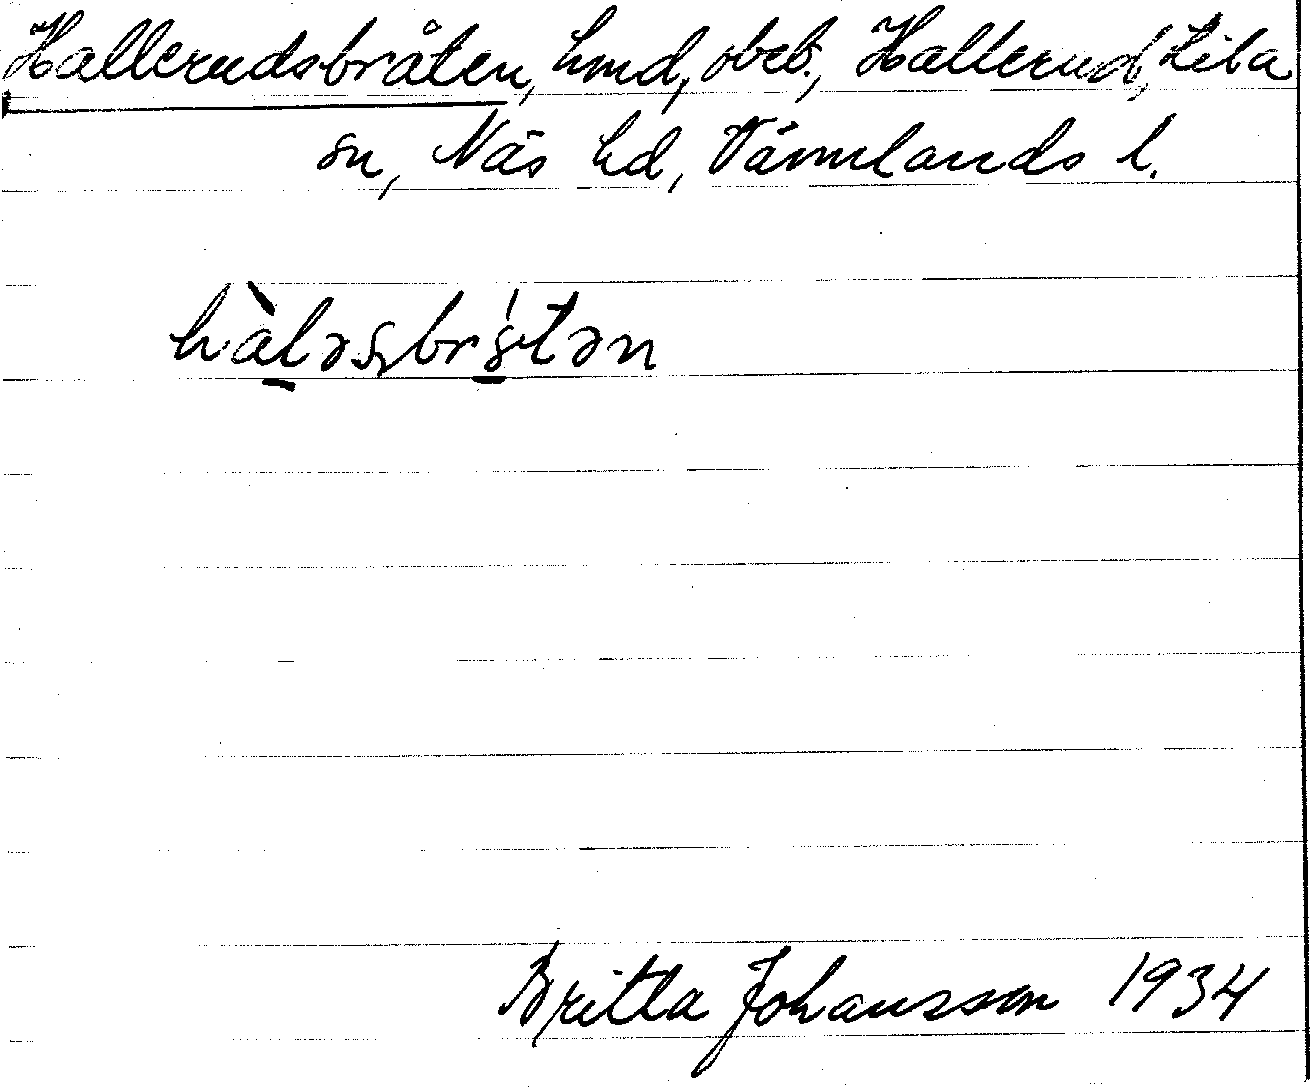 Hallerudsbråten, hmd, obeb., Hallerud, Eda
sn, Näs hd, Värmlands l.
hàləsbråtən
Britta Johansson 1934